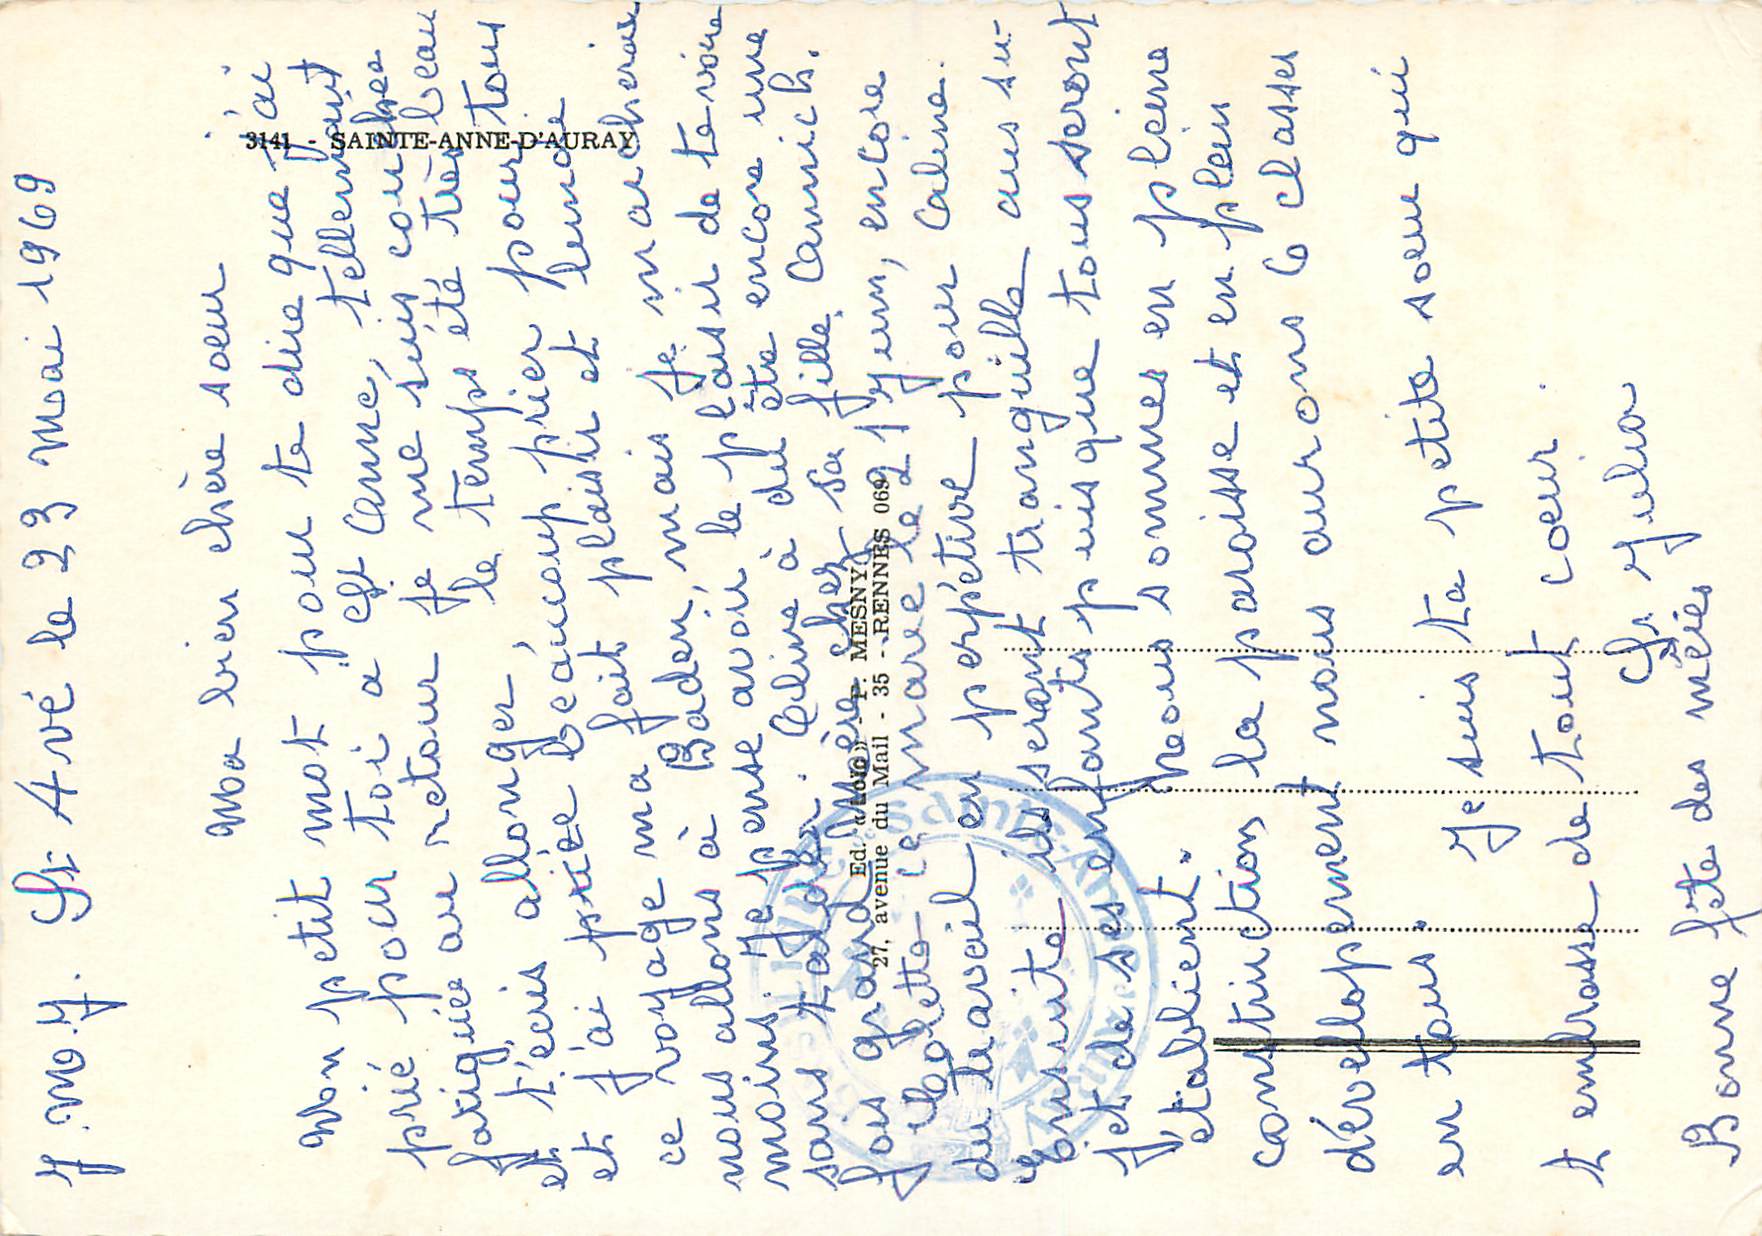 J. M. J. St Avé le 23 Mai 1969
Ma bien chère soeur
Mon petit mot pour te dire que j'ai
prié pour toi a est Canne, tellement
fatiguée au retour Je me suis couchee
et t'ecris allonger, le temps été très beau
et j'ai priée beaucoup prier pour tous
ce voyage ma fait plaisir et lundi
nous allons à Baden, mais Je marcherai
moins. Je pense avoir le plaisir de te voir
sans tarder. Celina à dû être encore une
fois grand mère chez sa fille Cannick.
Colette ce mare le 21 Juin, encore
du travail en perpétive pour Celina.
Ensuite ils seront tranquille au su-
jet de ses enfants puisque tous seront
établient. Nous sommes en pleine
construction la paroisse et en plein
dévellopement nous aurons 6 classes
en tous. Je suis ta petite soeur qui
t embrasse de tout coeur.
Sr Julia
Bonne fête des mères
3141 - SAINTE-ANNE-D'AURAY
Ed. P. MESNY
27, avenue du Mail - 35 - RENNES 069